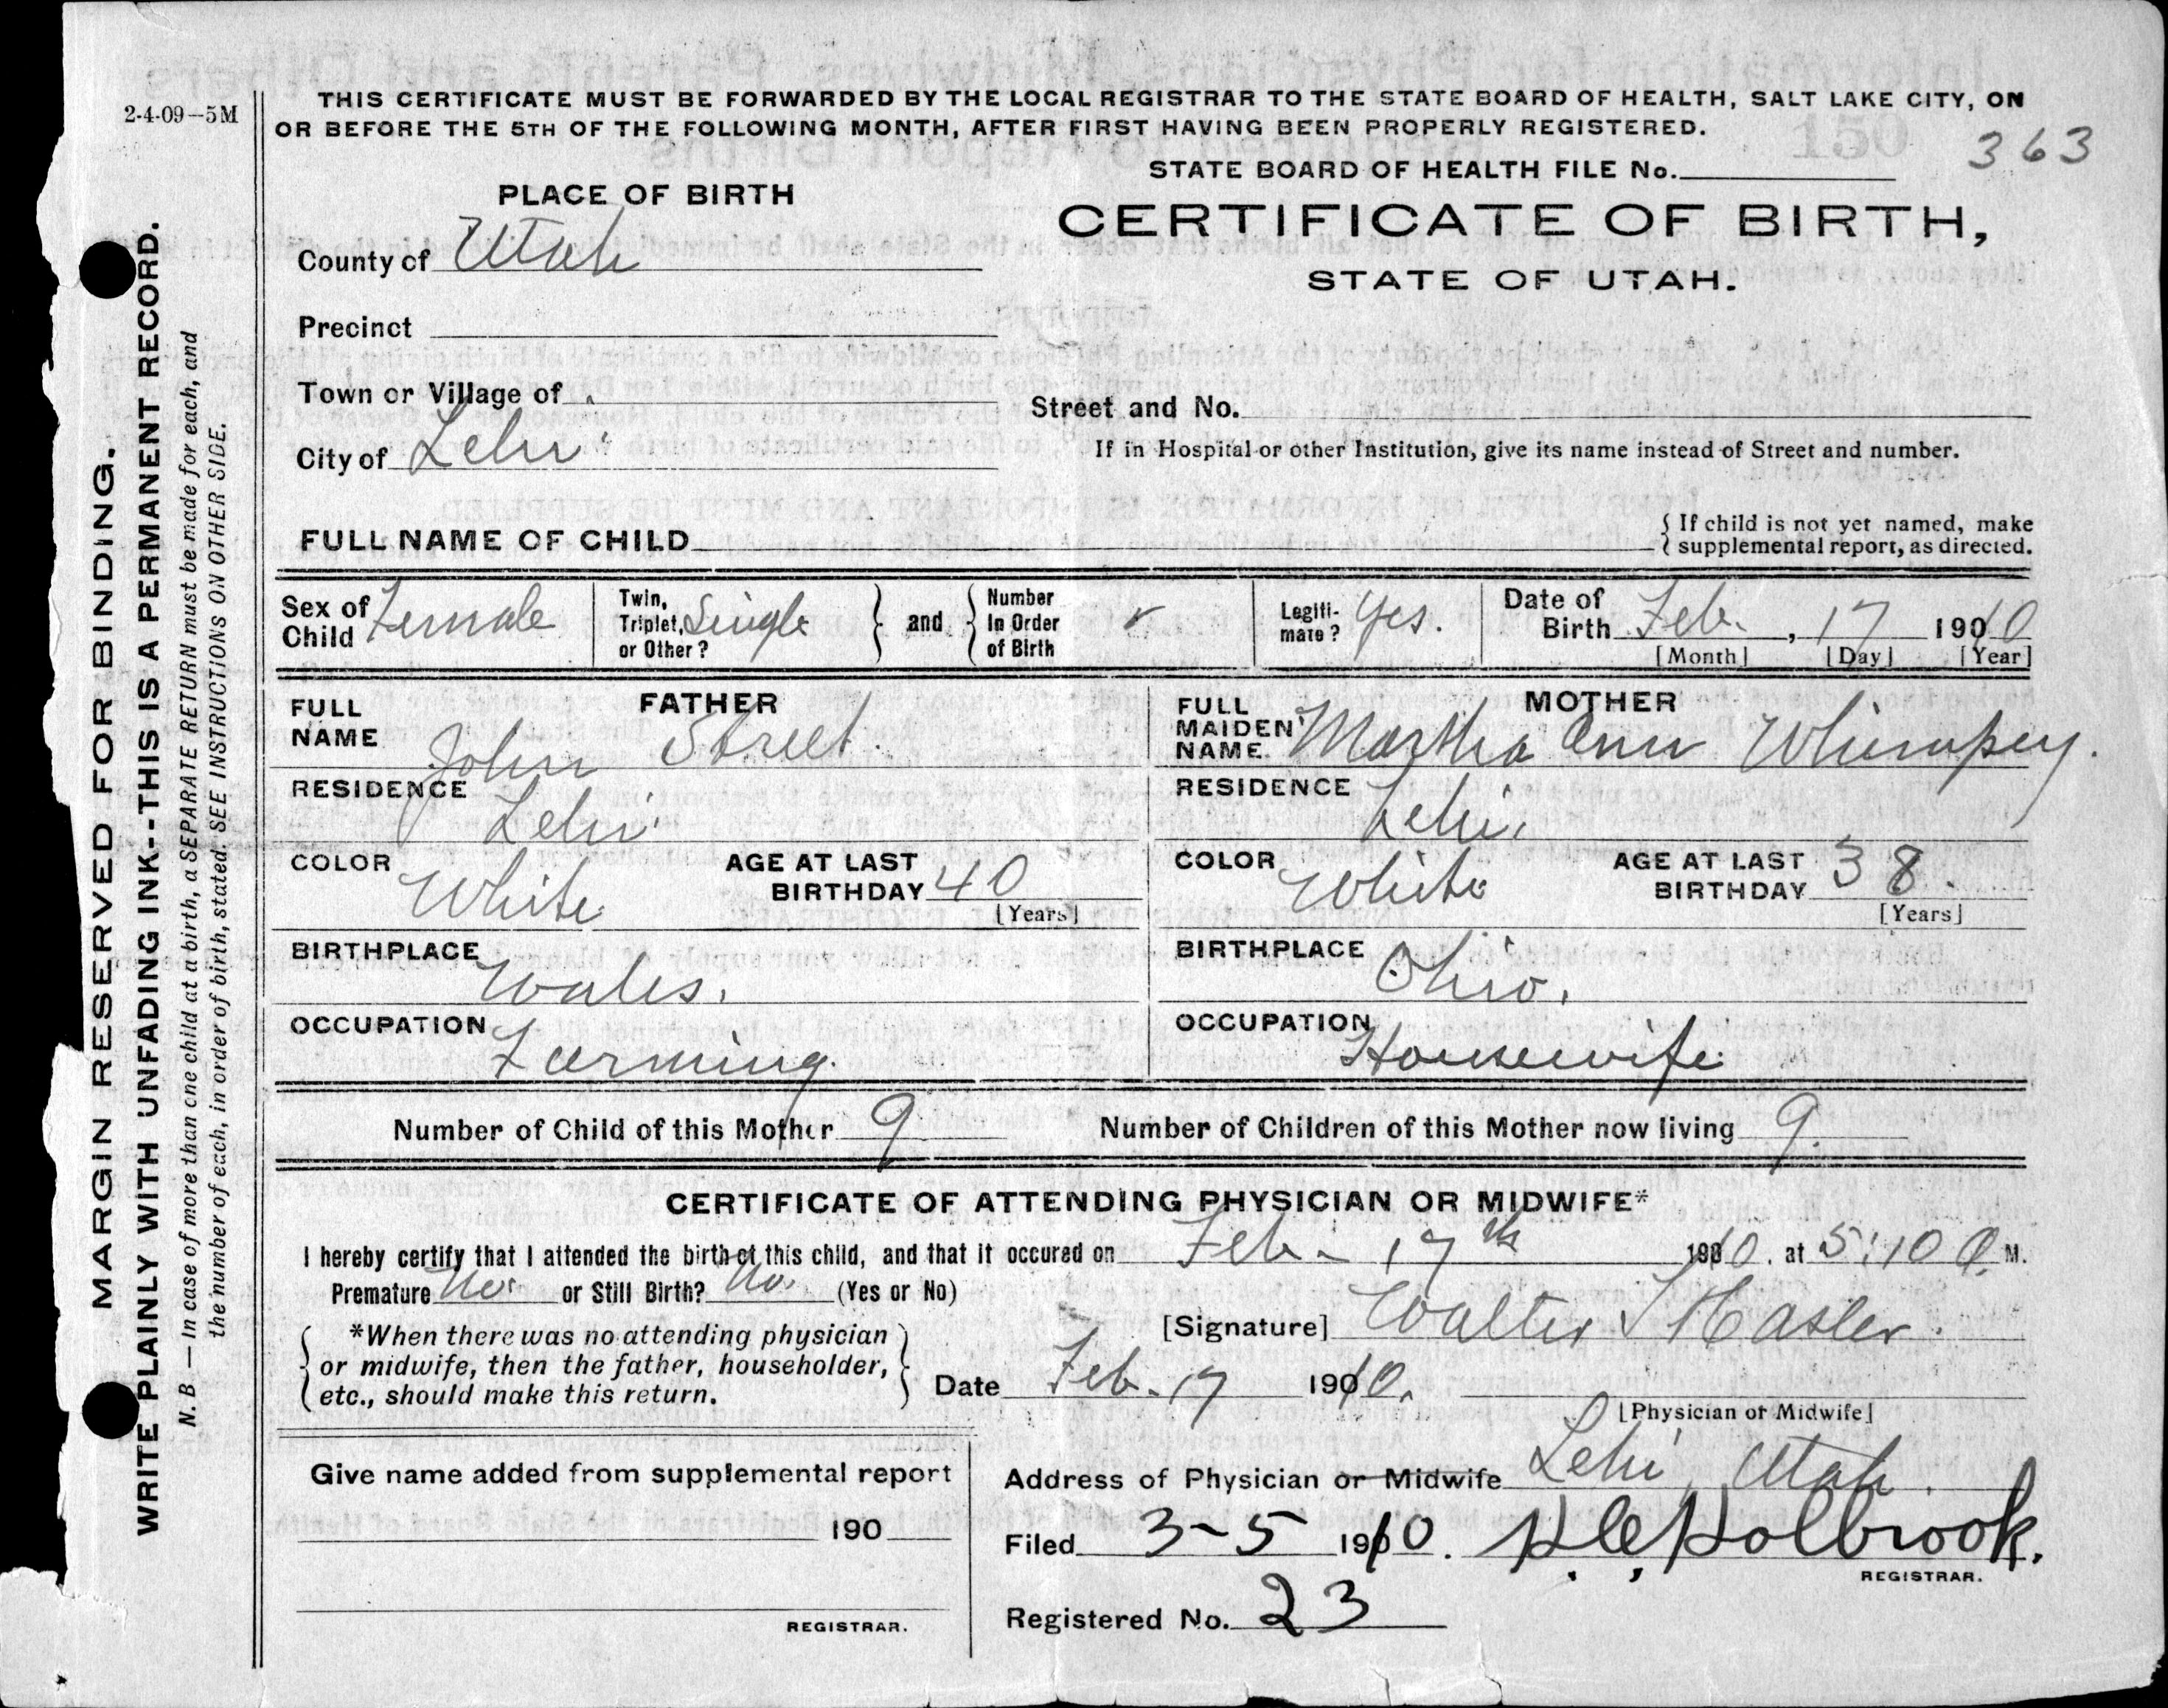 2-4-09—5M
THIS CERTIFICATE MUST BE FORWARDED BY THE LOCAL REGISTRAR TO THE STATE BOARD OF HEALTH, SALT LAKE CITY, ON
OR BEFORE THE 5TH OF THE FOLLOWING MONTH, AFTER FIRST HAVING BEEN PROPERLY REGISTERED.
150
363
STATE BOARD OF HEALTH FILE No.
PLACE OF BIRTH
CERTIFICATE OF BIRTH,
STATE OF UTAH.
County of Utah
Precinct
Town or Village of
Street and No.
City of Lehi
If in Hospital or other Institution, give its name instead of Street and number.
FULL NAME OF CHILD
{ If child is not yet named, make
supplemental report, as directed.
Sex of Child Female
Twin, Triplet, or Other? Single } and { Number In Order of Birth
Legiti-mate? Yes.
Date of Birth Feb. , 17 1910
[Month] [Day] [Year]
FATHER
FULL NAME John Street.
RESIDENCE Lehi
COLOR White
AGE AT LAST BIRTHDAY 40
[Years]
BIRTHPLACE Wales.
OCCUPATION Farming.
MOTHER
FULL MAIDEN NAME Martha Ann Whimpey.
RESIDENCE Lehi.
COLOR White
AGE AT LAST BIRTHDAY 38.
[Years]
BIRTHPLACE Ohio.
OCCUPATION Housewife
Number of Child of this Mother 9
Number of Children of this Mother now living 9.
CERTIFICATE OF ATTENDING PHYSICIAN OR MIDWIFE*
I hereby certify that I attended the birth of this child, and that it occured on Feb. 17th 1910. at 5:10 M.
Premature No. or Still Birth? No. (Yes or No)
[Signature] Walter T Hasler.
*When there was no attending physician
or midwife, then the father, householder,
etc., should make this return.
Date Feb. 17 1910.
[Physician or Midwife]
Address of Physician or Midwife Lehi, Utah.
Give name added from supplemental report
190
REGISTRAR.
Filed 3-5 1910. Holbrook.
REGISTRAR.
Registered No. 23
MARGIN RESERVED FOR BINDING.
WRITE PLAINLY WITH UNFADING INK--THIS IS A PERMANENT RECORD.
N. B — In case of more than one child at a birth, a SEPARATE RETURN must be made for each, and
the number of each, in order of birth, stated. SEE INSTRUCTIONS ON OTHER SIDE.